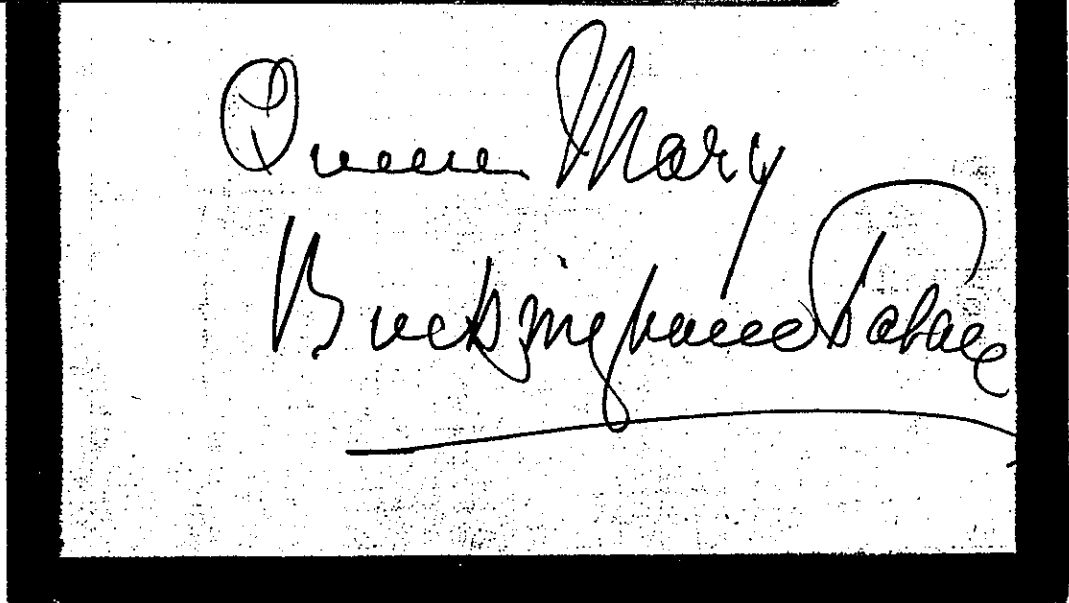 Queen Mary
Buckingham Palace